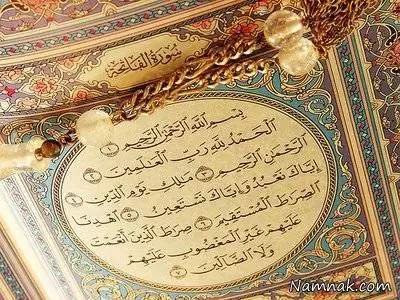 سُورَةُ الفَاتِحَةِ
بِسْمِ ٱللَّهِ ٱلرَّحْمَٰنِ ٱلرَّحِيمِ ١
ٱلْحَمْدُ لِلَّهِ رَبِّ ٱلْعَٰلَمِينَ ٢
ٱلرَّحْمَٰنِ ٱلرَّحِيمِ ٣ مَٰلِكِ يَوْمِ ٱلدِّينِ ٤
إِيَّاكَ نَعْبُدُ وَإِيَّاكَ نَسْتَعِينُ ٥ ٱهْدِنَا
ٱلصِّرَٰطَ ٱلْمُسْتَقِيمَ ٦ صِرَٰطَ ٱلَّذِينَ أَنْعَمْتَ
عَلَيْهِمْ غَيْرِ ٱلْمَغْضُوبِ عَلَيْهِمْ
وَلَا ٱلضَّآلِّينَ ٧
Namnak.com